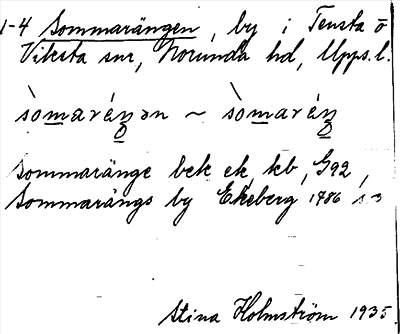 1-4 Sommarängen, by i Tensta o
Viksta snr, Norunda hd, Upps. l.
sòmaréŋən ~ sòmaréŋ
Sommaränge bek ek, kb, G92,
Sommarängs by Ekeberg 1786 s 3
Stina Holmström 1935.